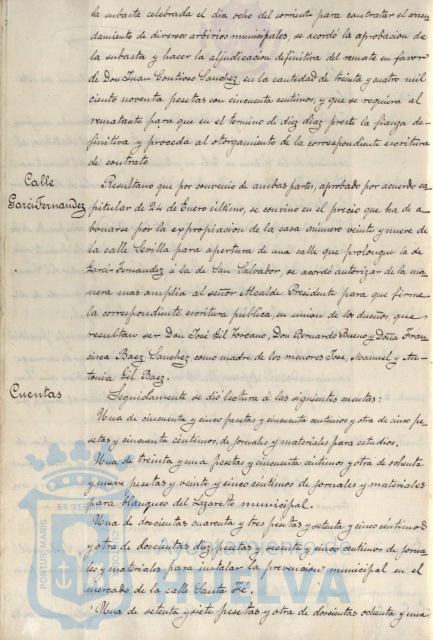 la subasta celebrada el día ocho del corriente para contratar el arren
damiento de diversos arbitrios municipales, se acordó la aprobacion de
la subasta y hacer la aljudicacion definitiva del remate en favor
de Don Juan Contioso Sanchez, en la cantidad de treinta y cuatro mil
ciento noventa pesetas con cincuenta centimos, y que se requiera al
rematante para que en el termino de diez diaz preste la fianza de-
finitiva y proceda al otorgamiento de la correspondiente escritura
de contrato.
Calle
Garci-Fernandez
Resultano que por convenio de ambas partes, aprobado por acuerdo ca
pitular de 24 de Enero último, se convino en el precio que ha de a-
bonarse por la expropiacion de la casa número veinte y nueve de
la calle Sevilla para apertura de una calle que prolongue la de
Garci-Fernandez á la de San Salvador, se acordó autorizar de la ma
nera mas amplia al señor Alcalde Presidente para que firme
la correspondiente escritura publica, en union de los dueños, que
resultan ser Don José Gil Toscano, Don Bernardo Bueno y Doña Fran
cisca Baez Sanchez como madre de los menores José, Manuel y An-
tonia Gil Baez.
Cuentas
Seguidamente se dió lectura á las siguientes cuentas:
Una de cincuenta y cinco pesetas y cincuenta centimos y otra de cinco pe
setas y cincuenta centimos, de jornales y materiales para estudios.
Una de treinta y una pesetas y cincuenta centimos y otra de ochenta
y nueve pesetas y veinte y cinco centimos de jornales y materiales
para blanqueo del Lazareto municipal.
Una de doscientas cuarenta y tres pesetas y setenta y cinco centimos
y otra de doscientas diez pesetas y sesenta y cinco centimos de jorna
les y materiales para instalar la prevencion municipal en el
mercado de la calle Santa Fé.
Una de setenta y siete pesetas y otra de doscientas ochenta y una
PORTUS MARIS
ET TERRAE
Ayuntamiento de
HUELVA